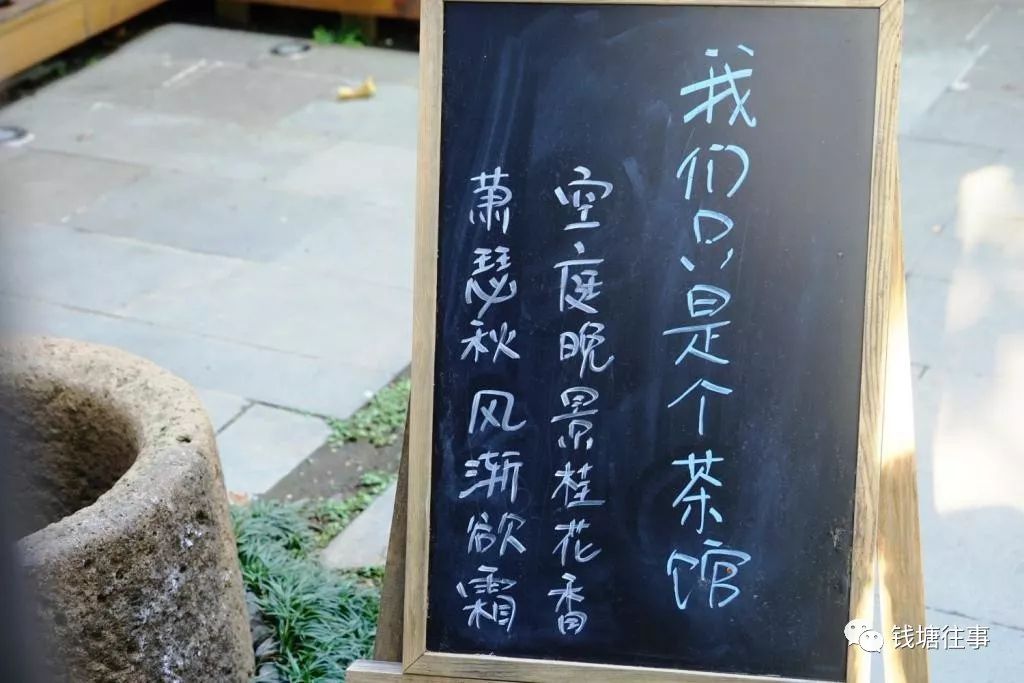 我们只是个茶馆
空庭晚景桂花香
萧瑟秋风渐欲霜
钱塘往事